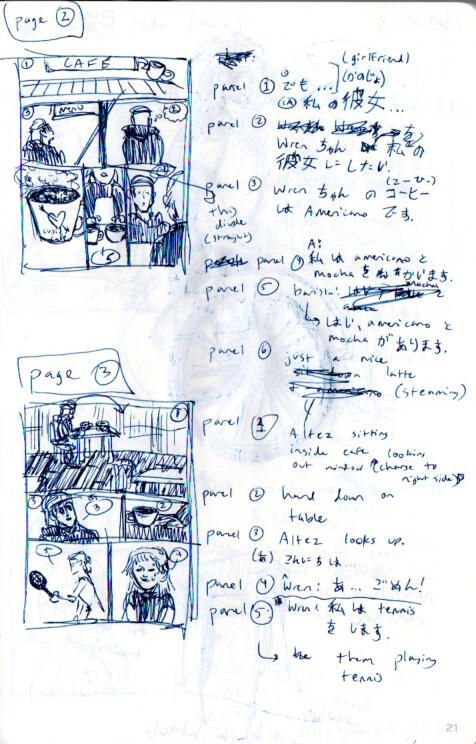 page 2
1
CAFE
MENU
panel ① でも...
(girlfriend)
(かのじょ)
私の彼女...
panel ②
Wrenちゃん は 私の
彼女にしたい.
panel ③ Wrenちゃん の コーヒー
(こーひー)
は Americano です.
this
divide
(straight)
A:
panel ④ 私は americano と
mocha をねがいます.
panel ⑤ barista:
mocha
↳ はい, americano と
mocha が あります.
panel ⑥ just a nice
latte
(steaming)
page 3
panel 1
Altez sitting
inside cafe looking
out window (change to
right side)
panel ② hand down on
table
panel ③ Altez looks up.
(あ) こんにちは...
panel ④ Wren: あ... ごめん!
panel ⑤ Wren: 私は tennis
をします.
↳ be them playing
tennis
21